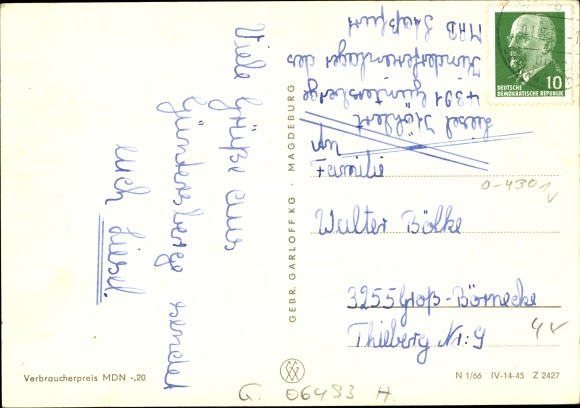 Viele Grüße aus
Güntersberge sendet
euch Liesel.
Liesel Köhlert
4391 Güntersberge
Kinderferienlager des
MAB Staßfurt
An
Familie
Walter Bölke
3255 Groß-Börnecke
Thieberg Nr: 9
DEUTSCHE
DEMOKRATISCHE REPUBLIK
10
GEBR. GARLOFF KG · MAGDEBURG
0-4301
4
Verbraucherpreis MDN -,20
N 1/66 IV-14-45 Z 2427
G. 06493 H.